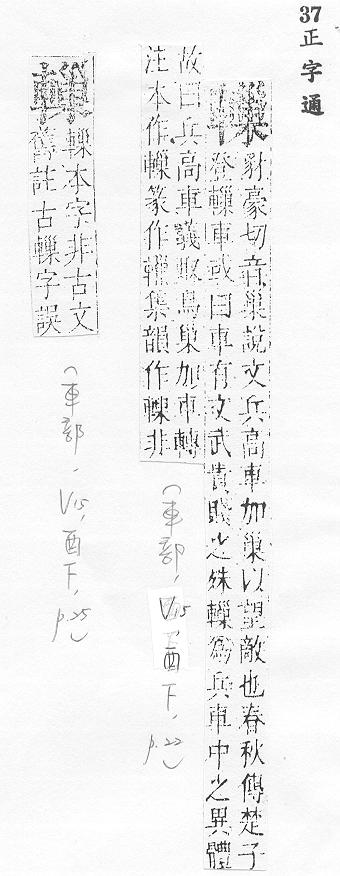 37正字通
轈豺豪切音巢說文兵高車加巢以望敵也春秋傳楚子
登轈車或曰車有文武貴賤之殊轈為兵車中之異體
故曰兵高車義取鳥巢加車轉
注本作轈篆作轈集韻作樔非
（車部，V15，酉下，p.22）
轈本字非古文
舊註古轈字誤
（車部，V15，酉下，p.25）